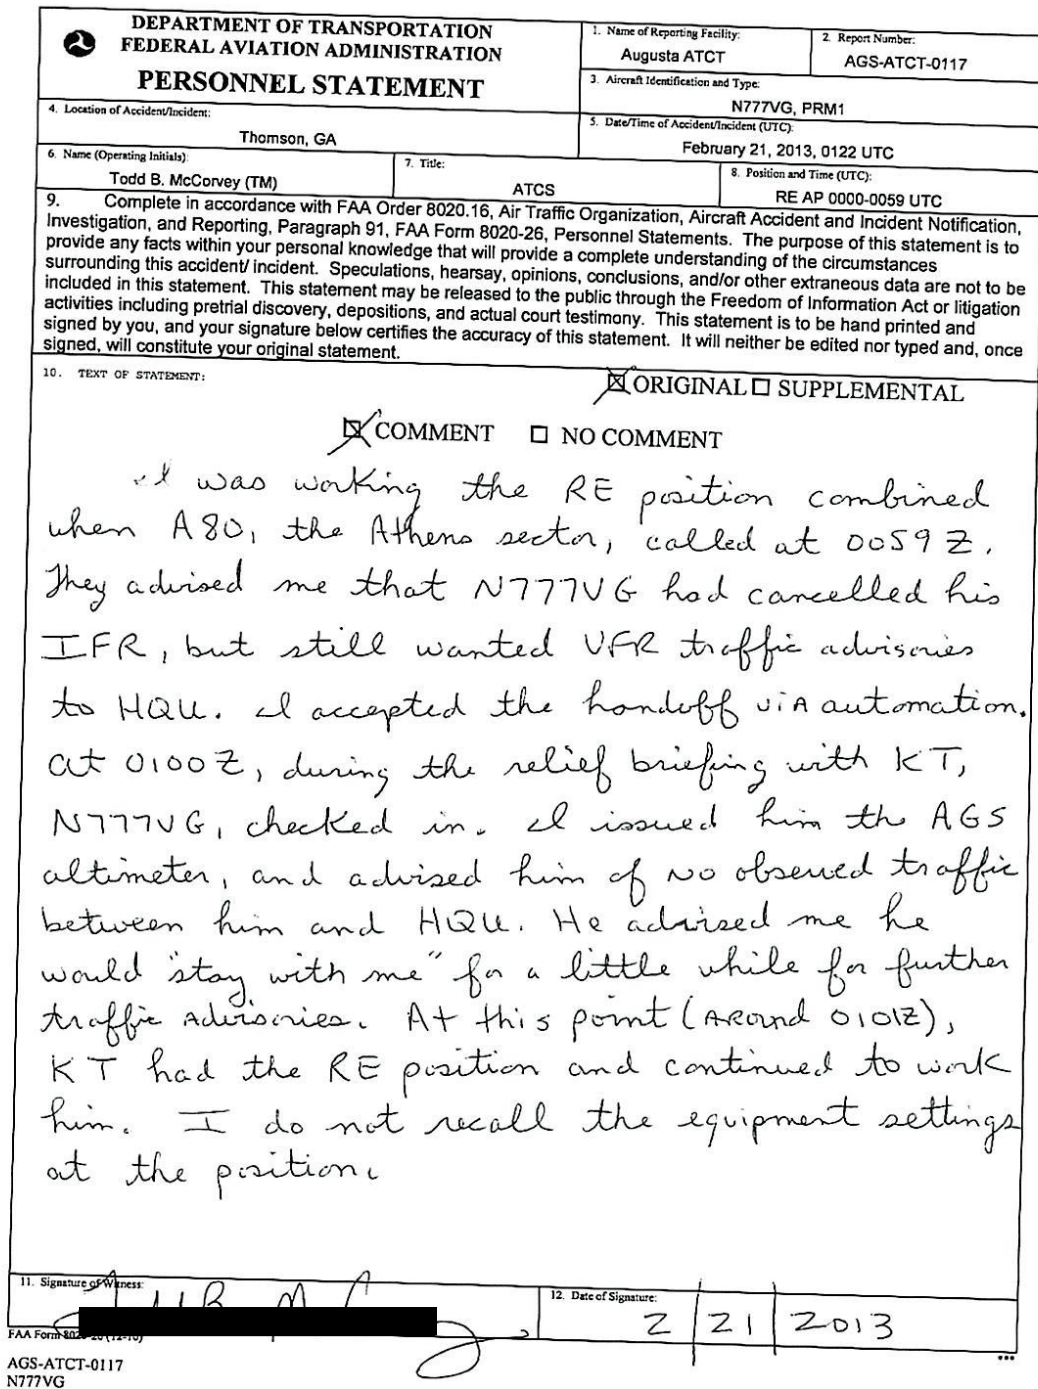 DEPARTMENT OF TRANSPORTATION
FEDERAL AVIATION ADMINISTRATION
PERSONNEL STATEMENT
1. Name of Reporting Facility:
Augusta ATCT
2. Report Number:
AGS-ATCT-0117
3. Aircraft Identification and Type:
N777VG, PRM1
4. Location of Accident/Incident:
Thomson, GA
5. Date/Time of Accident/Incident (UTC):
February 21, 2013, 0122 UTC
6. Name (Operating Initials):
Todd B. McCorvey (TM)
7. Title:
ATCS
8. Position and Time (UTC):
RE AP 0000-0059 UTC
9. Complete in accordance with FAA Order 8020.16, Air Traffic Organization, Aircraft Accident and Incident Notification,
Investigation, and Reporting, Paragraph 91, FAA Form 8020-26, Personnel Statements. The purpose of this statement is to
provide any facts within your personal knowledge that will provide a complete understanding of the circumstances
surrounding this accident/ incident. Speculations, hearsay, opinions, conclusions, and/or other extraneous data are not to be
included in this statement. This statement may be released to the public through the Freedom of Information Act or litigation
activities including pretrial discovery, depositions, and actual court testimony. This statement is to be hand printed and
signed by you, and your signature below certifies the accuracy of this statement. It will neither be edited nor typed and, once
signed, will constitute your original statement.
10. TEXT OF STATEMENT:
ORIGINAL SUPPLEMENTAL
COMMENT NO COMMENT
I was working the RE position combined
when A80, the Athens sector, called at 0059Z.
They advised me that N777VG had cancelled his
IFR, but still wanted VFR traffic advisories
to HQU. I accepted the handoff viA automation.
at 0100Z, during the relief briefing with KT,
N777VG, checked in. I issued him the AGS
altimeter, and advised him of No observed traffic
between him and HQU. He advised me he
would "stay with me" for a little while for further
traffic advisories. At this point (ARound 0101Z),
KT had the RE position and continued to work
him. I do not recall the equipment settings
at the position.
11. Signature of Witness:
12. Date of Signature:
2 | 21 | 2013
FAA Form 8020-26 (12-10)
AGS-ATCT-0117
N777VG